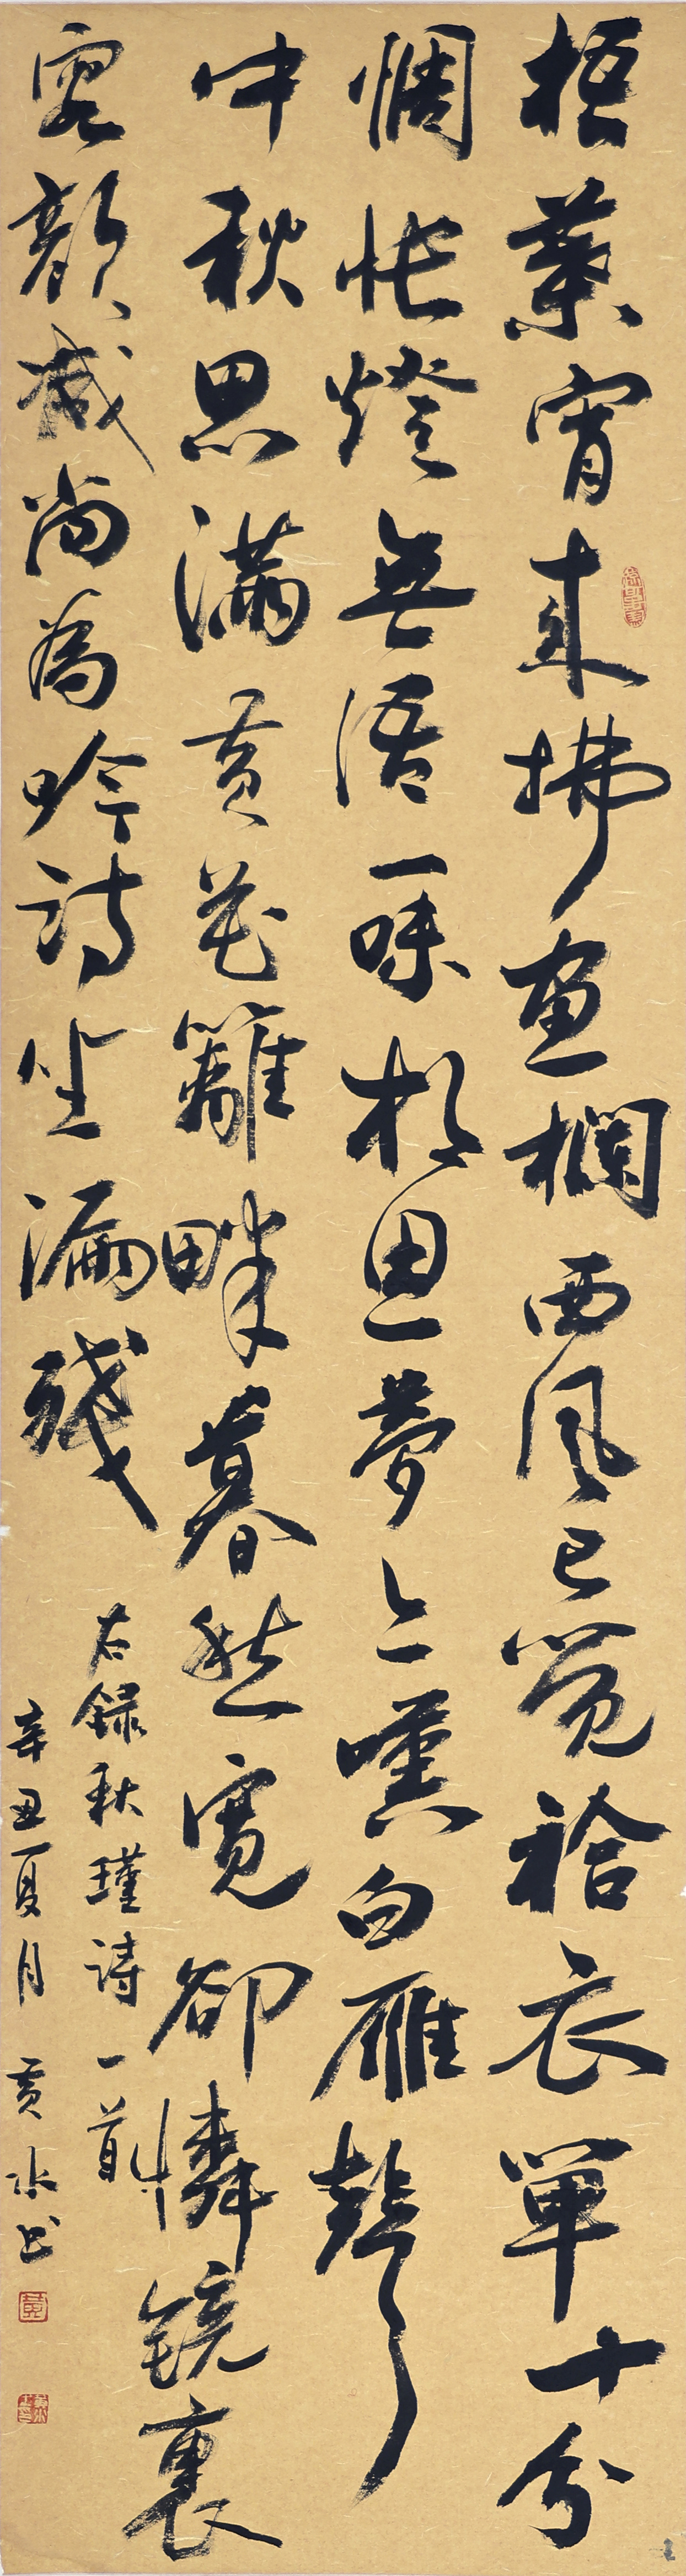 梧葉宵來拂畫欄西風已覺袷衣單十分
惆悵燈無語一味相思夢亦嘆白雁聲
中秋思滿黃花籬畔暮煙寬卻憐鏡裏
容顏減尚為吟詩坐漏殘
右錄秋瑾詩一首
辛丑夏月 黃水書